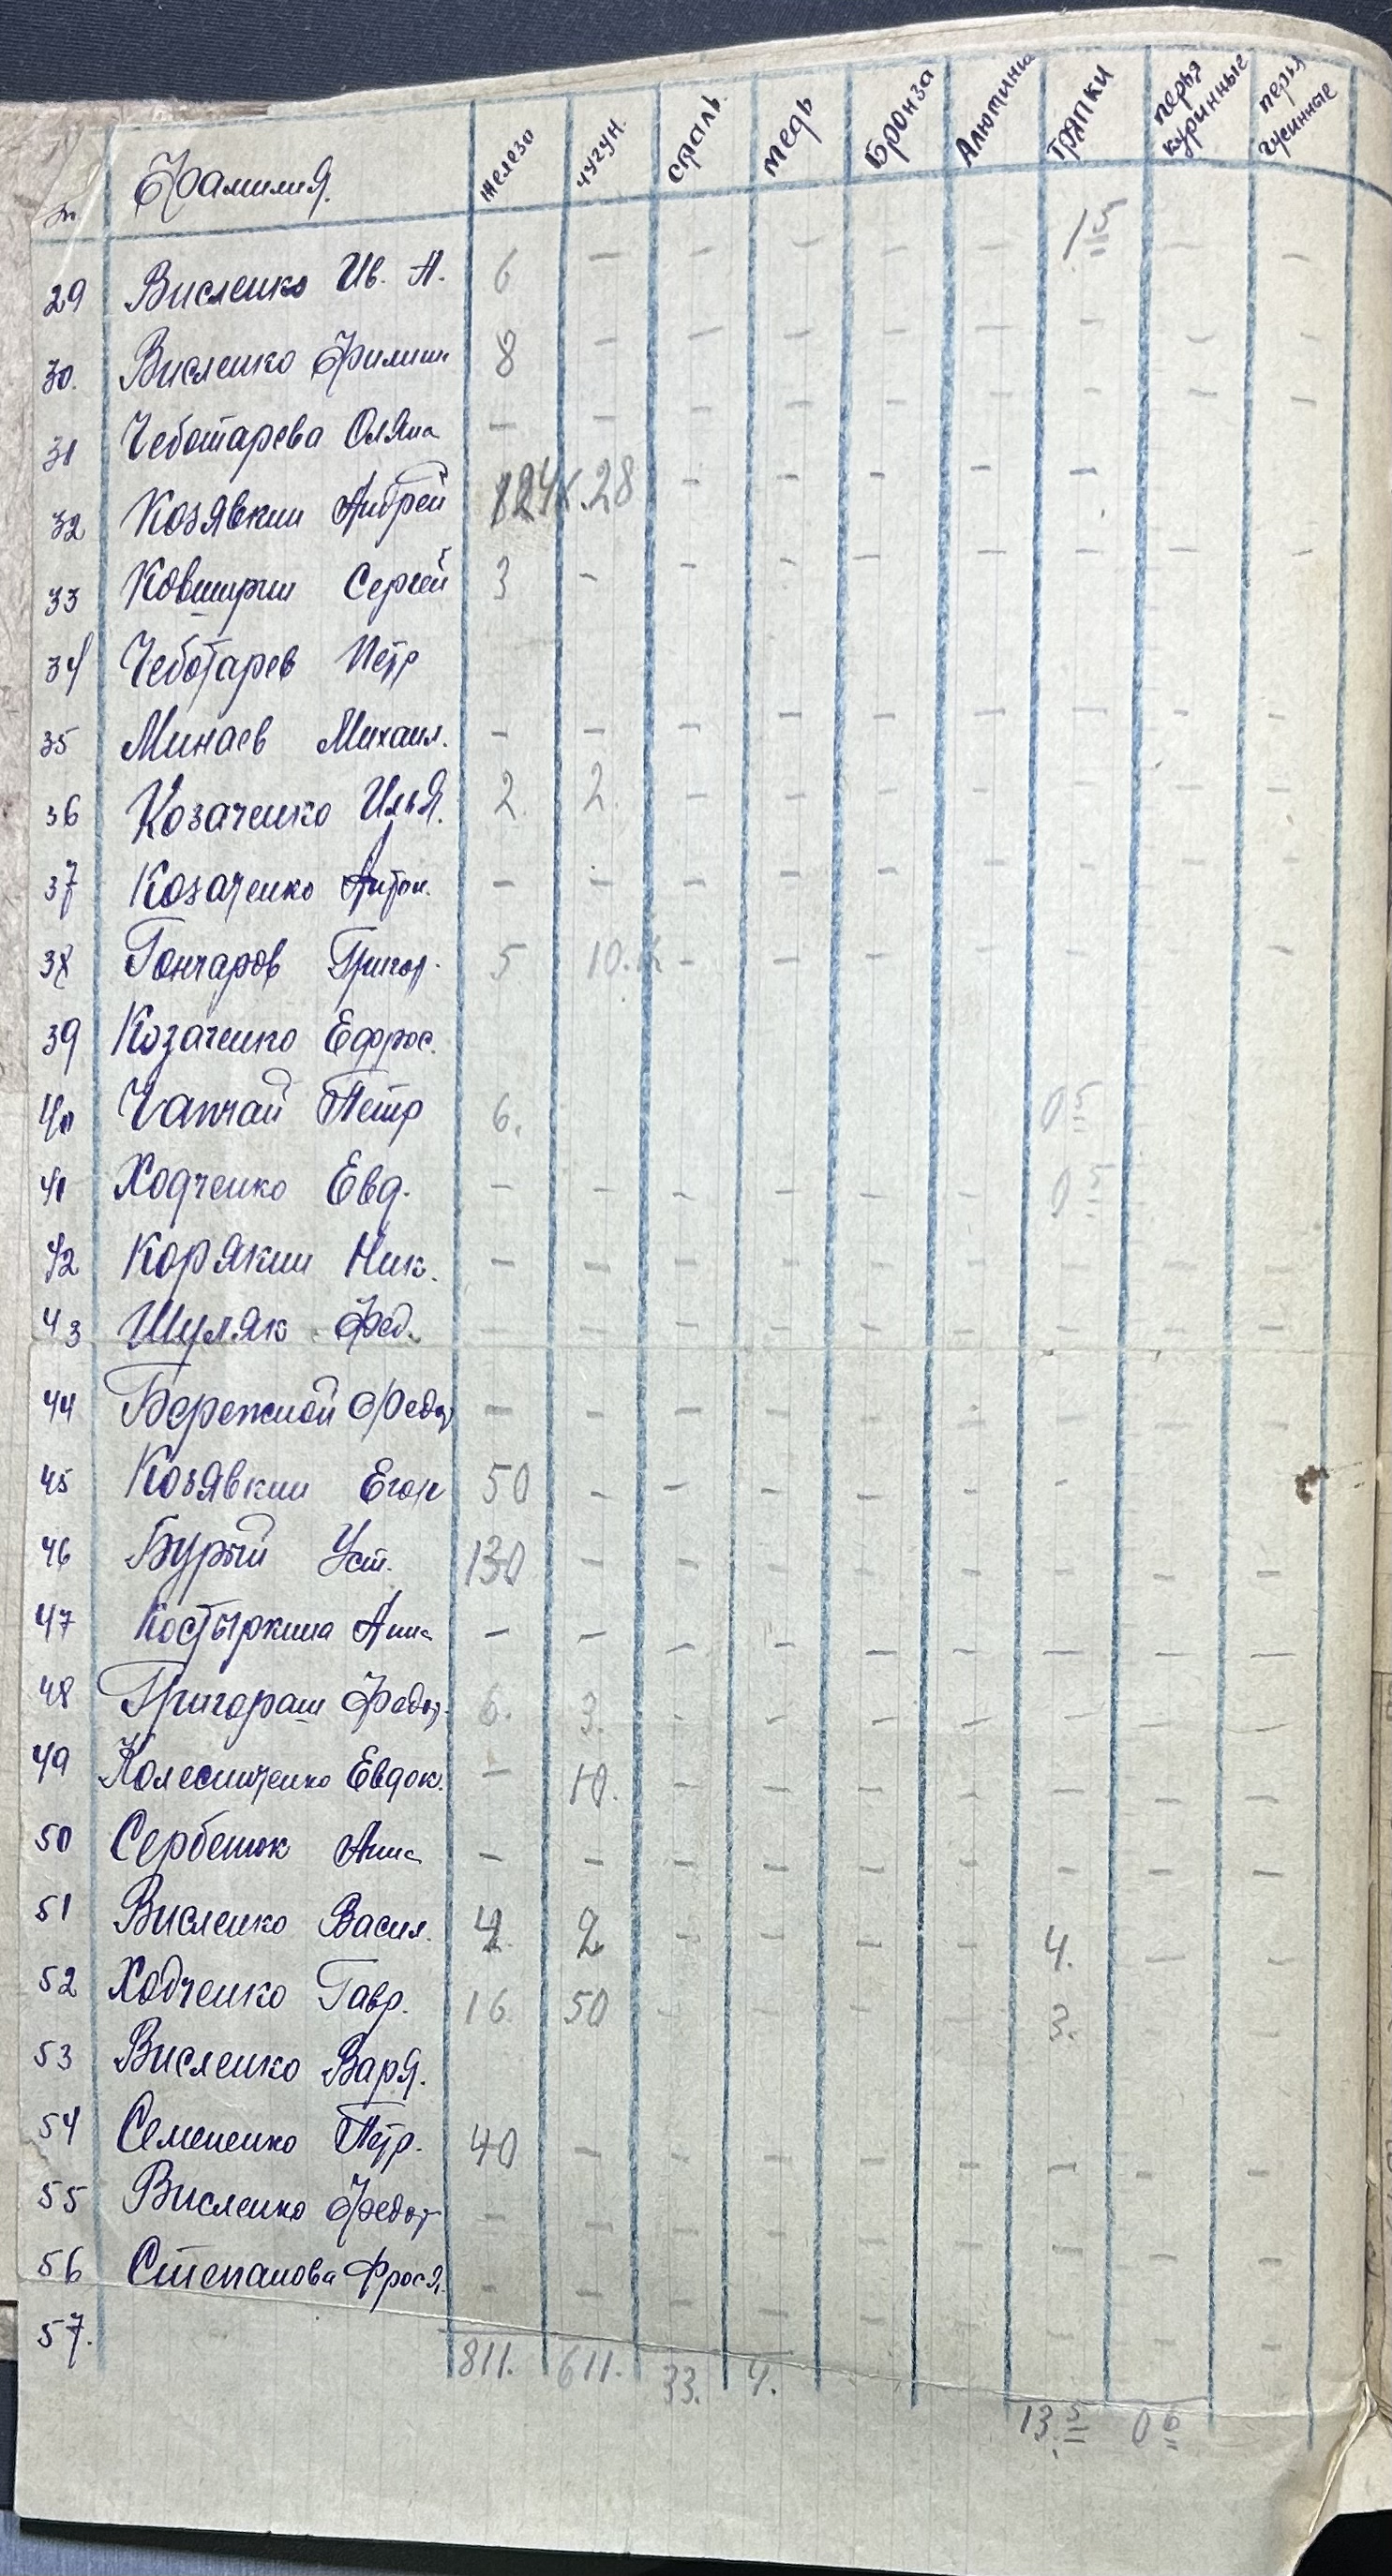 Фамилия. железо чугун. сталь. медь Бронза Алюминий тряпки перья куринные перья гусинные
29 Висленко Ив. А. 6 — — — — — 1 5 — —
30. Висленко Филип 8 — — — — — — — —
31 Чеботарева Оляна — — — — — — — — —
32 Козявкин Андрей 28 — — — — —
33 Ковширин Сергей 3 — — — — — — — —
34 Чеботарев Петр
35 Минаев Михаил. — — — — — — — — —
36 Козаченко Илья. 2. 2. — — — — — — —
37 Козаченко Антон. — — — — — — — — —
38 Гончаров Григор. 5 10.к — — — — — — —
39 Козаченко Ефрос.
40 Чапчай Петр 6. 0 5
41 Ходченко Евд. — — — — — — 0 5
42 Корякин Ник. — — — — — — — — —
43 Шуляк Фед. — — — — — — — — —
44 Бережной Федот — — — — — — — — —
45 Козявкин Егор 50 — — — — — —
46 Бурый Уст. 130 — — — — — — — —
47 Костыркина Анна — — — — — — — — —
48 Григораш Федот. 6. 3. — — — — — — —
49 Колесниченко Евдок. — 10. — — — — — — —
50 Сербенюк Анна — — — — — — — — —
51 Висленко Васил. 2 — — — — 4. — —
52 Ходченко Гавр. 16. 50 — — — — 3. — —
53 Висленко Варя.
54 Семененко Петр. 40 — — — — — — — —
55 Висленко Федот — — — — — — — — —
56 Степанова Фрося. — — — — — — — — —
57.
811. 611. 33. 4. 13. 5 0 6